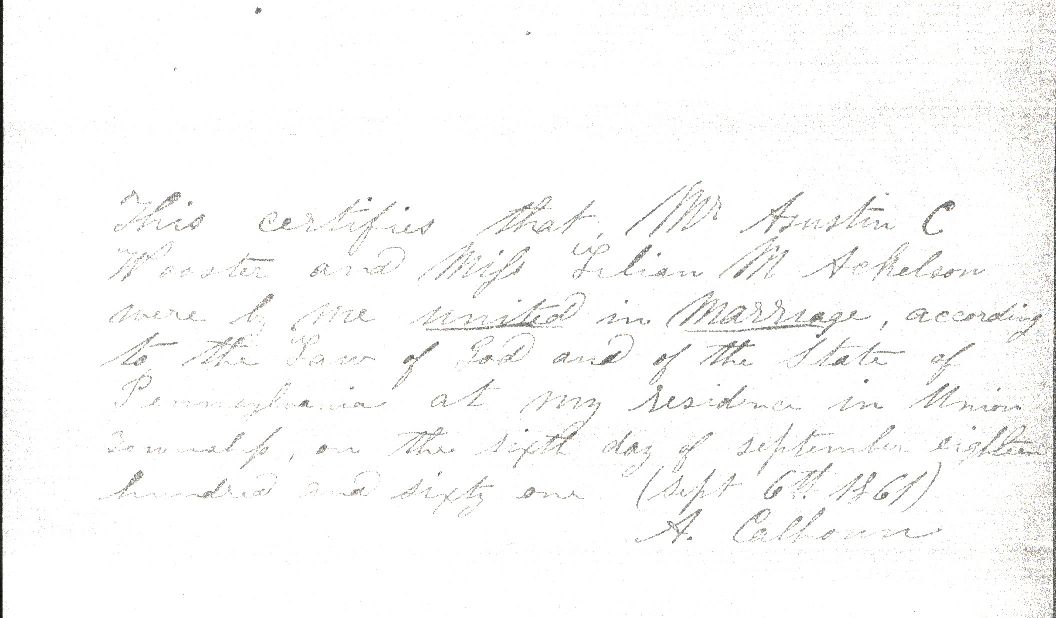 This certifies that, Mr Asustin C
Wooster and Miss Lilian M Ackelson
were by me united in Marriage, according
to the Law of God and of the State of
Pennsylvania at my residence in Union
Township, on the sixth day of september eighteen
hundred and sixty one (sept 6th 1861)
A. Calhoun